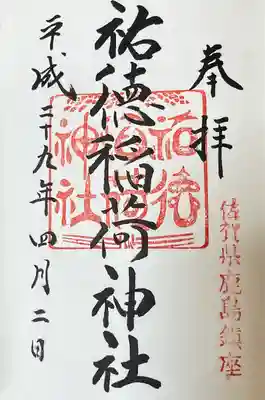 奉拝
佐賀県鹿島鎮座
祐徳稲荷神社
祐徳稲荷神社
平成二十九年四月二日